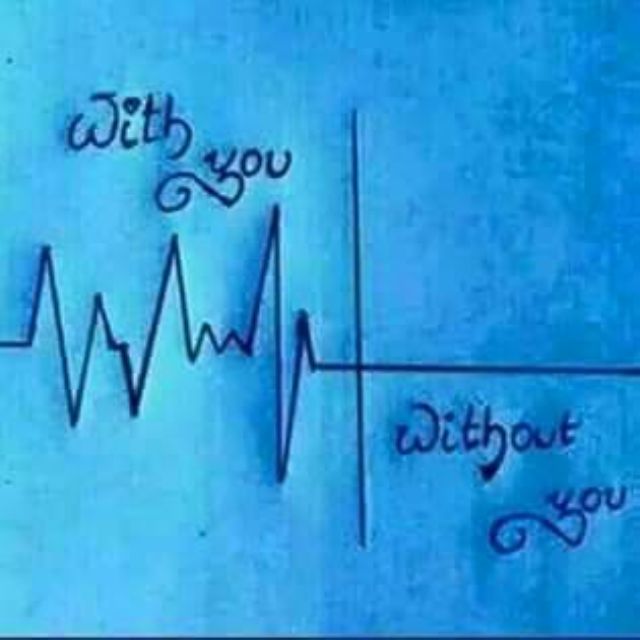 With
you
Without
you